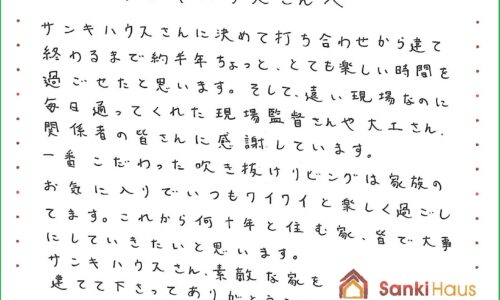 サンキハウスさんに決めて打ち合わせから建て
終わるまで約半年ちょっと、とても楽しい時間を
過ごせたと思います。そして、遠い現場なのに
毎日通ってくれた現場監督さんや大工さん、
関係者の皆さんに感謝しています。
一番こだわった吹き抜けリビングは家族の
お気に入りでいつもワイワイと楽しく過ごし
てます。これから何十年と住む家、皆で大事
にしていきたいと思います。
サンキハウスさん、素敵な家を
建てて下さってありがとう
Sanki Haus